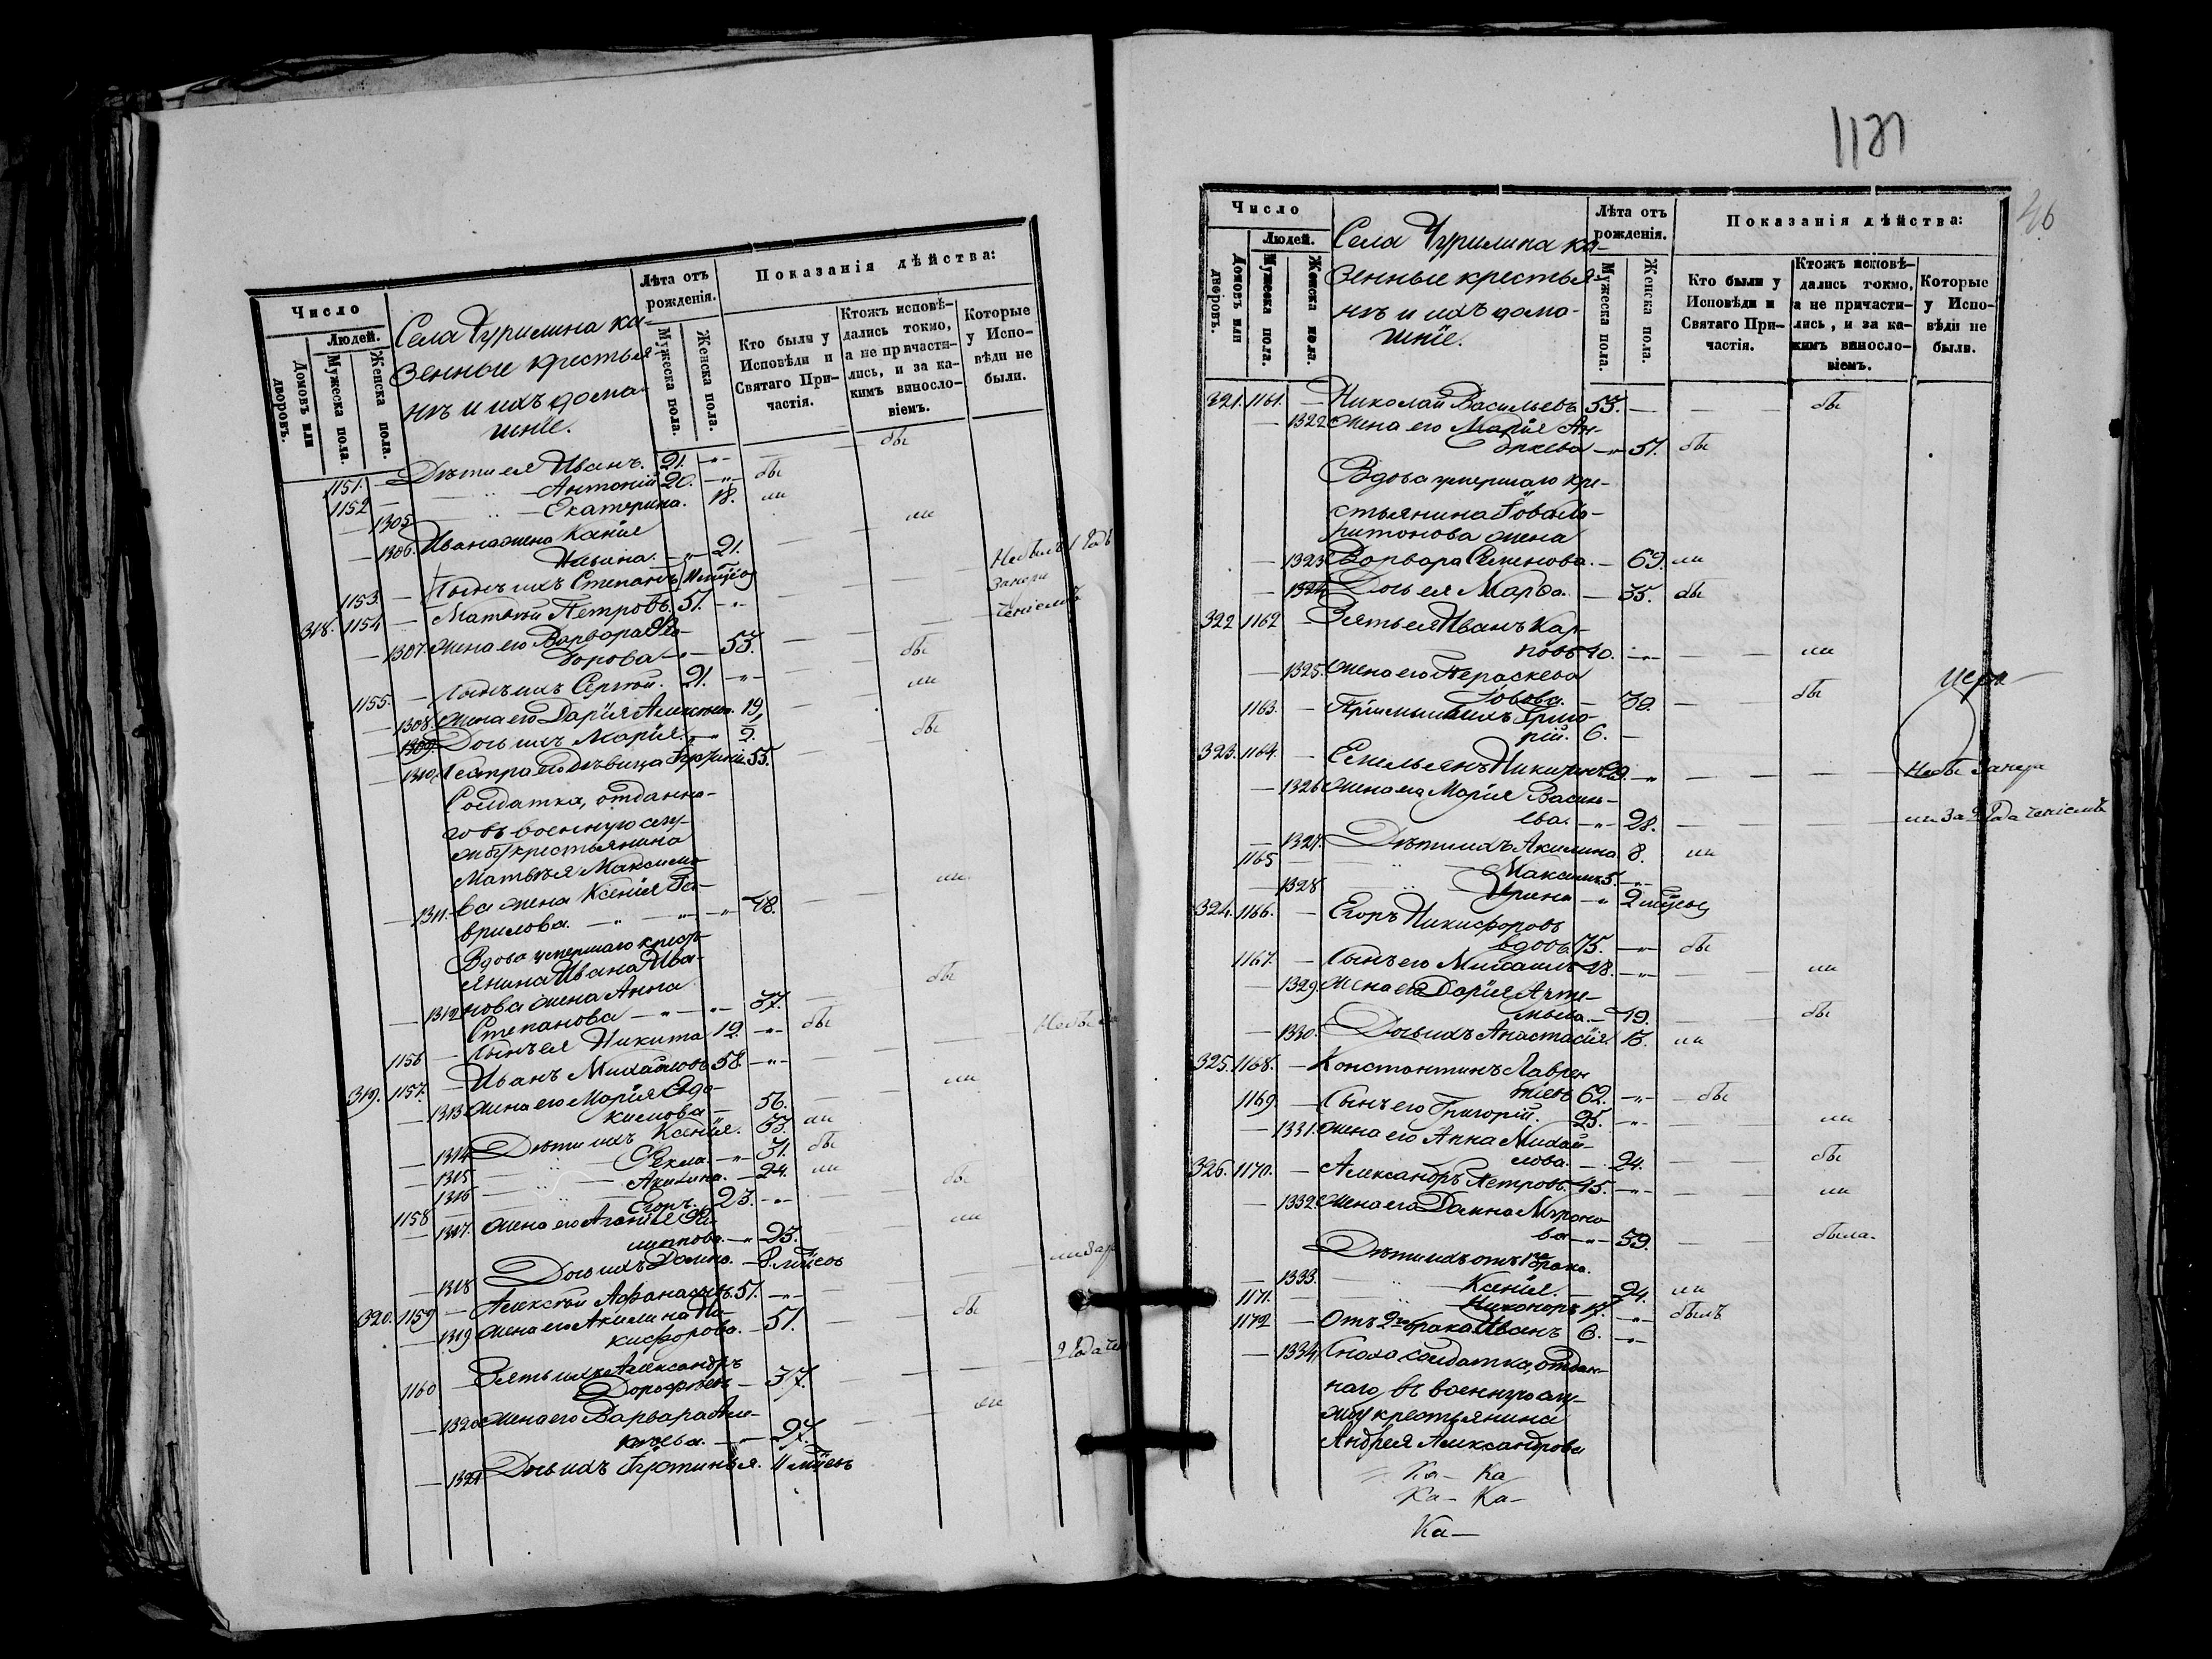 Число
Людей.
Домовъ или дворовъ.
Мужеска пола.
Женска пола.
Села Чурилина ка-
зенные крестья-
нѣ и ихъ дома-
шніе.
Лѣта отъ рожденія.
Мужеска пола.
Женска пола.
Показанія дѣйства:
Кто были у Исповѣди и Святаго Причастія.
Ктожъ исповѣ-
дались токмо,
а не причасти-
лись, и за ка-
кимъ винословіемъ.
Которые
у Испо-
вѣди не
были.
1151. — Дѣти ея Иванъ. 21. -„- — бы
1152 — „ — Антоній 20. -„- бы
— 1305 „ — Екатерина. 18. ли
— 1306. Ивана жена Ксенія
Ильина. -„- 21. — ли
1153. — Сынъ ихъ Степанъ 11 мцсов
318. 1154 — Матвѣй Петровъ. 57. -„- Небылъ 1 Годъ
— 1307. Жена его Варвара Фео-
дорова -„- 53. — бы
1155. — Сынъ ихъ Сергѣй. 21. -„- — ли
— 1308. Жена его Дарія Алексѣева. 19.
— 1309. Дочь ихъ Марія. -„- 2. — бы
— 1310. Сестра его дѣвица 55.
Солдатка, отданна-
го въ военную слу-
жбу крестьянина
Матвѣя Максимо-
— 1311. ва жена Ксенія Га-
врилова. — „ — „ — „ 48. — ли
Вдова умершаго кресть-
янина Ивана Ива-
— 1312 нова жена Анна
Степанова — „ — „ — 37. — бы
1156 — Сынъ ея Никита 12. -„- бы
319. 1157. — Иванъ Михайловъ 58. -„- Небы
— 1313 Жена его Марія Евдо-
кимова — 56. — ли
— 1314 Дѣти ихъ Ксенія. 33. ли
— 1315 „ — Ѳекла. -„- 31. бы
— 1316 „ — Акилина. — 24. ли
1158 — „ — Егоръ. 23. -„- — бы
— 1317. Жена его Агапія Фи-
липпова. -„- 23. — ли
— 1318 Дочь ихъ Домна. — 8. мцсов
320. 1159 — Алексѣй Аѳанасьевъ. 51. -„-
— 1319 Жена его Акилина Ни-
кифорова. — 51. — бы
1160 — Зять ихъ Александръ
Дороѳеевъ — 37. — 2 Года
— 1320 Жена его Варвара Але-
ксѣева. -„- 27. — ли
— 1321 Дочь ихъ Іустинья. 11 мцсов
1121
46
Число
Людей.
Домовъ или дворовъ.
Мужеска пола.
Женска пола.
Села Чурилина ка-
зенные крестья-
нѣ и ихъ дома-
шніе.
Лѣта отъ рожденія.
Мужеска пола.
Женска пола.
Показанія дѣйства:
Кто были у Исповѣди и Святаго Причастія.
Ктожъ исповѣ-
дались токмо,
а не причасти-
лись, и за ка-
кимъ винословіемъ.
Которые
у Испо-
вѣди не
были.
321. 1161. — Николай Васильевъ 53. — — бы
— 1322 Жена его Марія Ан-
дреева -„- 51. бы
Вдова умершаго кре-
стьянина Іова Ха-
ритонова жена
— 1323 Варвара Семенова. — 69. ли
— 1324 Дочь ея Марѳа. — 35. бы
322 1162 — Зять ея Иванъ Кар-
повъ 40. -„- — ли
— 1325. Жена его Параскева
Іовова. — 32. — бы
1163. — Пріемышъ ихъ Григо-
рій. 6. —
323. 1164. — Емельянъ Никитинъ 29. -„- Небы
— 1326 Жена его Марія Василь-
ева. -„- 28. — ли за 2 Года
— 1327. Дѣти ихъ Акилина 8. ли
1165 — „ Максимъ 5. -„-
— 1328 „ Ирина -„- 2 мцсов
324. 1166. — Егоръ Никифоровъ
вдовъ 75. -„- бы
1167. — Сынъ его Михаилъ 48. -„- — ли
— 1329. Жена его Дарія Арте-
мьева. — 49. — бы
— 1330. Дочь ихъ Анастасія. 15. ли
325. 1168. — Константинъ Лаврен-
тіевъ 62. -„- — бы
1169 — Сынъ его Григорій. 25. -„- — ли
— 1331. Жена его Анна Михай-
лова. — 24. — бы
326. 1170. — Александръ Петровъ. 45. -„- — ли
— 1332. Жена его Домна Мироно-
ва -„- 39. — была.
Дѣти ихъ отъ 1го брака.
— 1333. „ Ксенія. — 24. ли
1171. — „ Никаноръ 17. -„- былъ
1172 — Отъ 2го брака Иванъ 6. -„-
— 1334. Сноха солдатка, отдан-
наго въ военную слу-
жбу крестьянина
Андрея Александрова
Ка- Ка
Ка- Ка-
Ка-